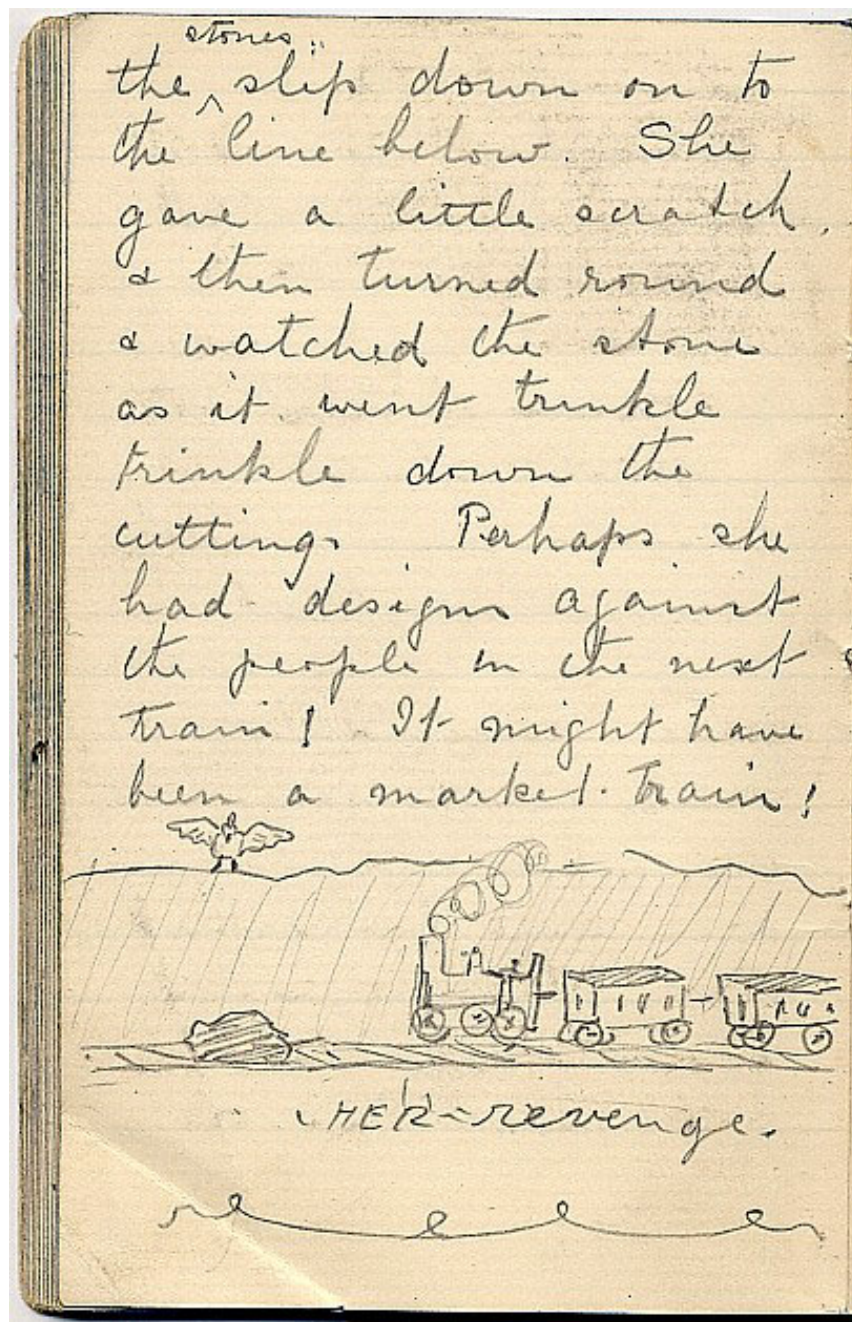 stones
the ^ slip down on to
the line below. She
gave a little scratch
& then turned round
& watched the stone
as it went trinkle
trinkle down the
cutting. Perhaps she
had designs against
the people in the next
train! It might have
been a market train!
HER revenge.